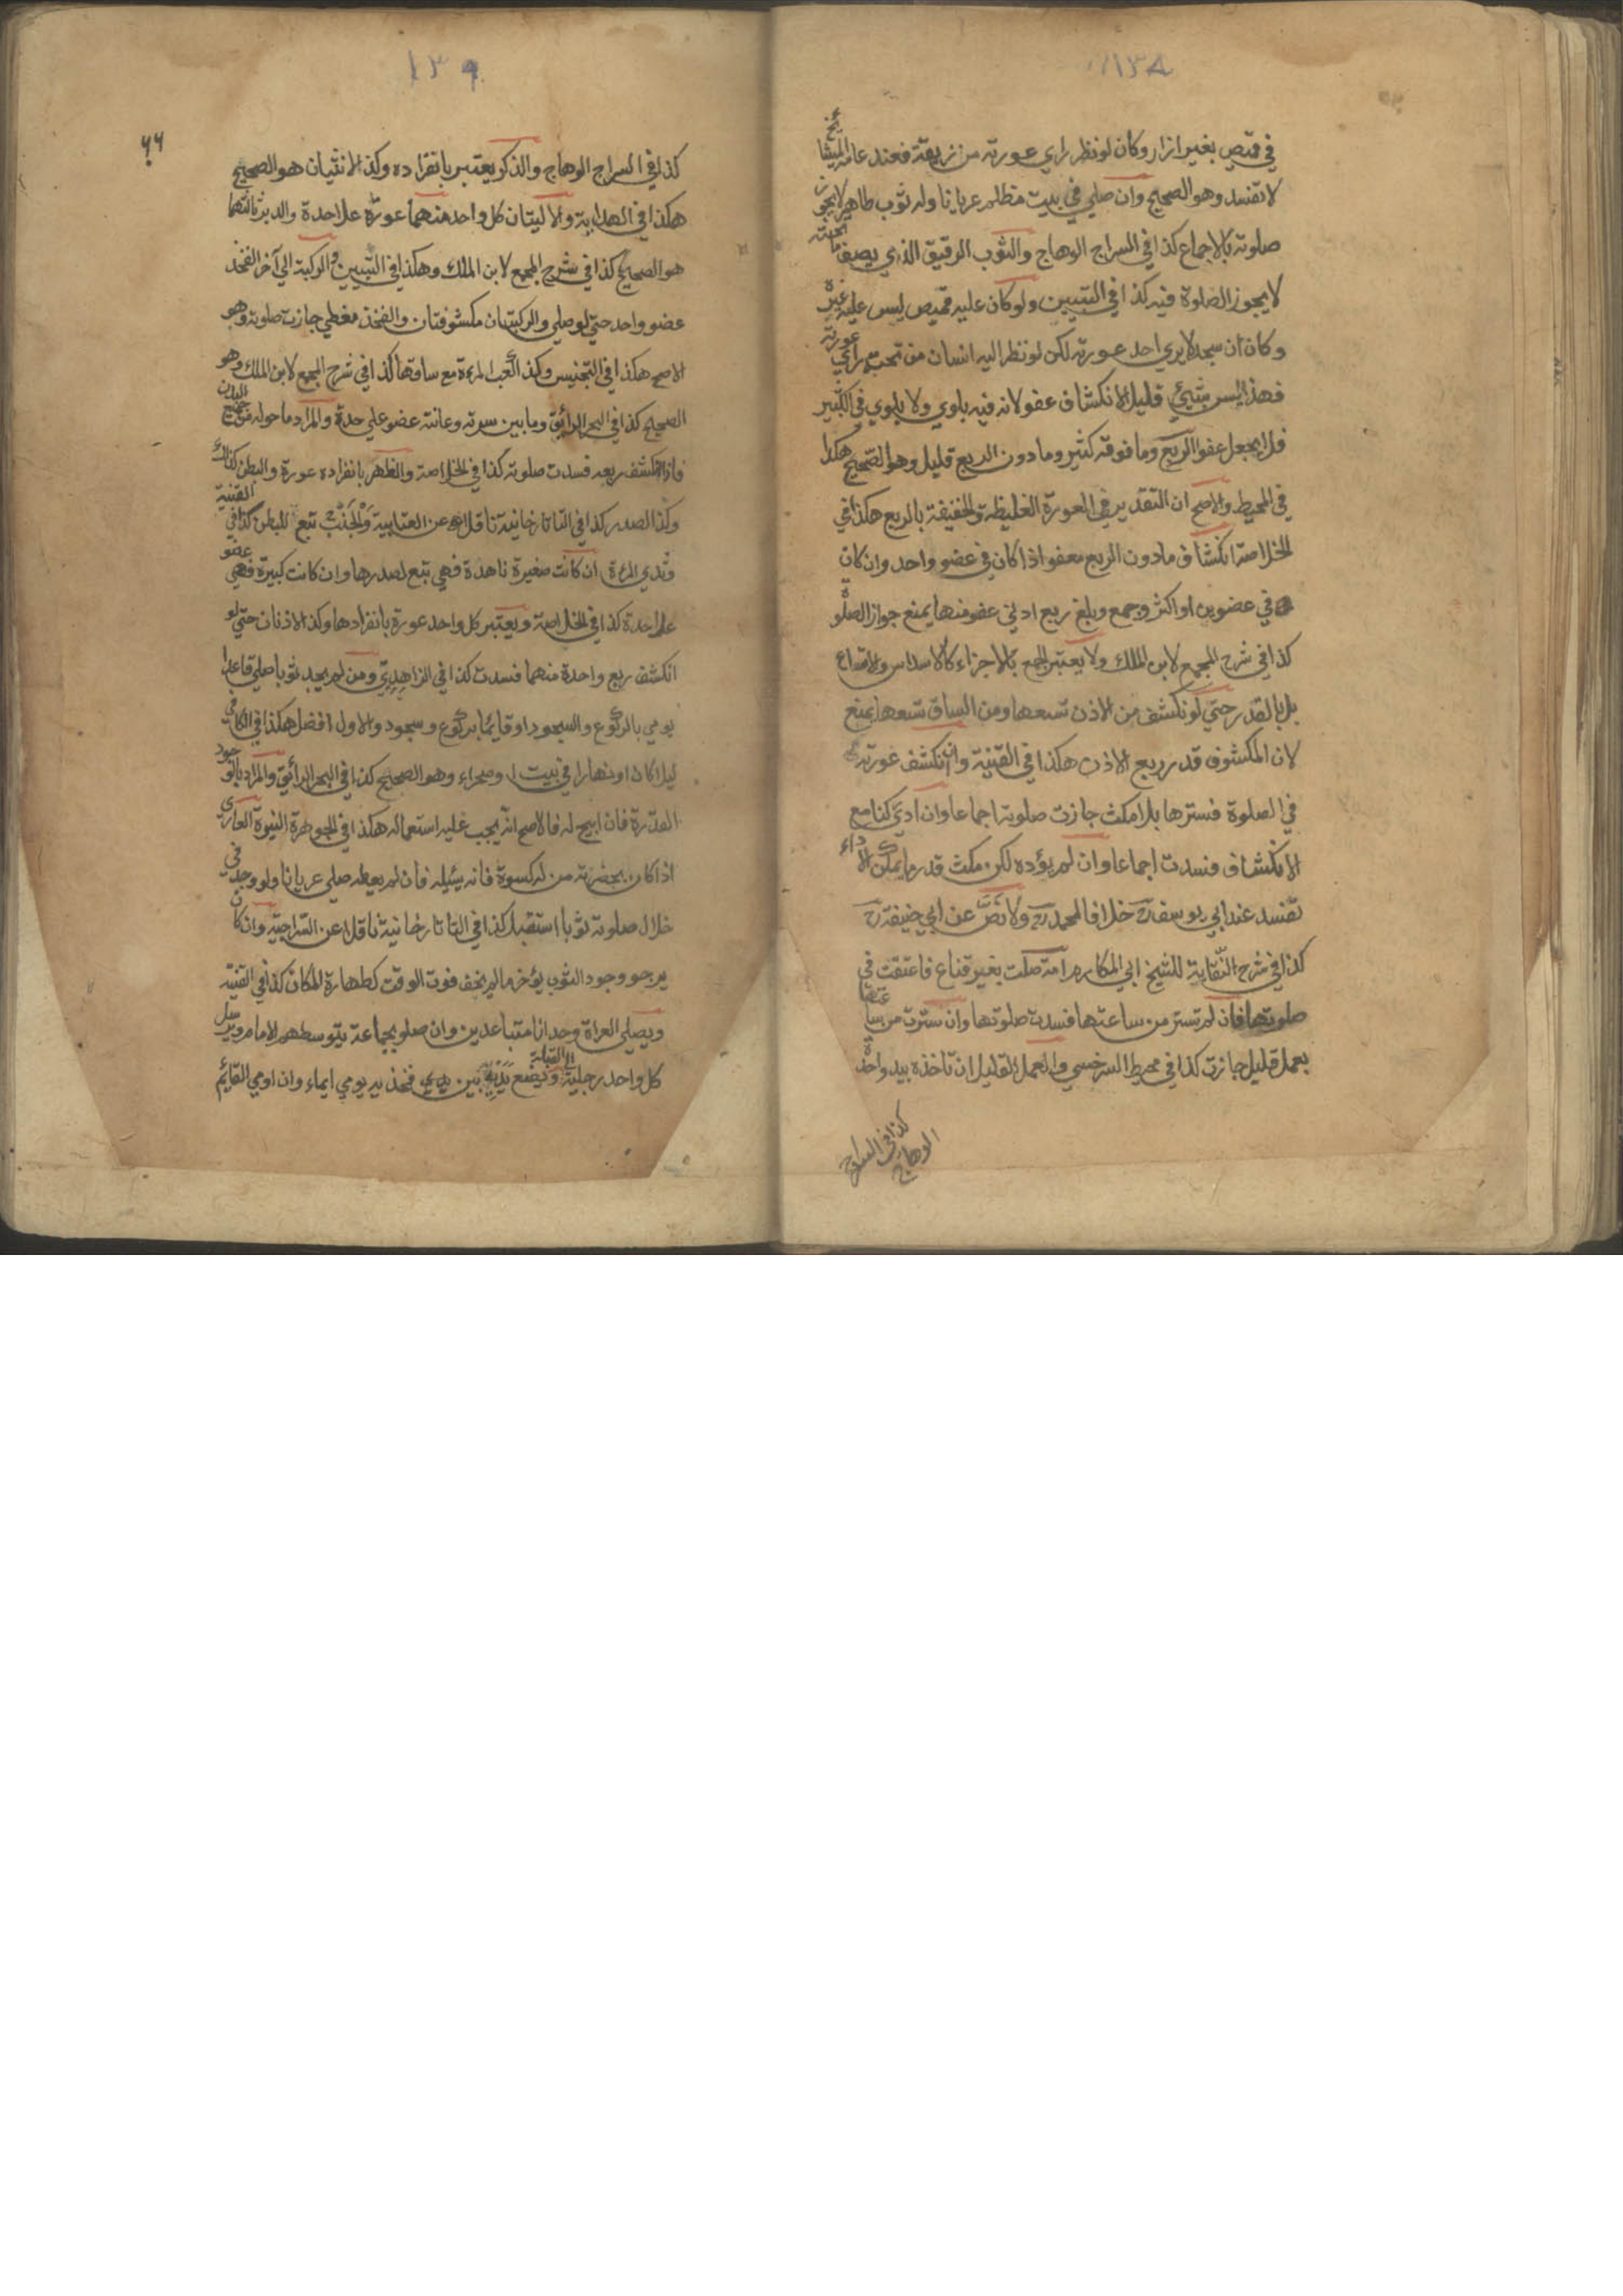 ١٣٨
في قميص بغير ازار وكان لو نظر راي عورته من زيقة فعند عامة المشايخ
لا تفسد وهو الصحيح وان صلي في بيت مظلم عريانا وله ثوب طاهر لا يجوز
صلوته بالاجماع كذا في السراج الوهاج والثوب الرقيق الذي يصف ما تحته
لا يجوز الصلوة فيه كذا في التبيين ولو كان عليه قميص ليس عليه غيره
وكان ان سجد لا يري احد عورته لكن لو نظر اليه انسان من تحته راي عورته
فهذا ليس بشيئ قليل الانكشاف عفو لانه فيه بلوي ولا بلوي في الكثير
فلا يجعل عفوا الربع وما فوقه كثير وما دون الربع قليل وهو الصحيح هكذا
في المحيط والاصح ان التقدير في العورة الغليظة والخفيفة بالربع هكذا في
الخلاصة انكشاف ما دون الربع معفو اذا كان في عضو واحد وان كان
في عضوين او اكثر وجمع وبلغ ربع ادني عضو منها يمنع جواز الصلوة
كذا في شرح المجمع لابن الملك ولا يعتبر الجمع بالاجزاء كالاسداس والاتساع
بل بالقدر حتي لو نكشف من الاذن تسعها ومن الساق تسعها يمنع
لان المكشوف قدر ربع الاذن هكذا في القنية وان انكشف عورته
في الصلوة فسترها بلا مكث جازت صلوته اجماعا وان ادي ركنا مع
الانكشاف فسدت اجماعا وان لم يؤده لكن مكث قدر ما يمكن الاداء
تفسد عند ابي يوسف رح خلافا لمحمد رح ولا نص عن ابي حنيفة رح
كذا في شرح النقاية للشيخ ابي المكارم امة صلت بغير قناع فاعتقت في
صلوتها فان لم تستر من ساعتها فسدت صلوتها وان سترت من ساعتها
بعمل قليل جازت كذا في محيط السرخسي والعمل القليل ان تاخذه بيد واحدة
كذا في السراج
الوهاج
١٣٩
٦٦
كذا في السراج الوهاج والذكر يعتبر بانفراده وكذا الانثيان هو الصحيح
هكذا في الهداية والاليتان كل واحد منهما عورة علاحدة والدبر ثالثهما
هو الصحيح كذا في شرح المجمع لابن الملك وهكذا في التبيين والركبة الي آخر الفخذ
عضو واحد حتي لو صلي والركبتان مكشوفتان والفخذ مغطي جازت صلوته وهو
الاصح هكذا في التجنيس وكذا كعب المرءة مع ساقها كذا في شرح المجمع لابن الملك وهو
الصحيح كذا في البحر الرائق وما بين سرته وعانته عضو علي حدة والمراد ما حوله من جميع البدن
فاذا انكشف ربعه فسدت صلوته كذا في الخلاصة والظهر بانفراده عورة والبطن كذلك
وكذا الصدر كذا في التاتارخانية ناقلا عن العتابية والجنب تبع للبطن كذا في القنية
وثدي المرءة ان كانت صغيرة ناهدة فهي تبع لصدرها وان كانت كبيرة فهي عضو
علاحدة كذا في الخلاصة ويعتبر كل واحد عورة بانفرادها وكذا الاذنان حتي لو
انكشف ربع واحدة منهما فسدت كذا في الزاهدي ومن لم يجد ثوبا صلي قاعدا
يومي بالركوع والسجود او قايما بركوع وسجود والاول افضل هكذا في الكافي
ليلا كان او نهارا في بيت او صحراء وهو الصحيح كذا في البحر الرائق والمراد بالوجود
القدرة فان ابيح له فالاصح انه يجب عليه استعماله هكذا في الجوهرة النيرة العاري
اذا كان بحضرته من له كسوة فانه يسئله فان لم يعطه صلي عريانا ولو وجد في
خلال صلوته ثوبا استقبل كذا في التاتارخانية ناقلا عن السراجية وان كان
يرجو وجود الثوب يؤخر ما لم يخف فوت الوقت كطهارة المكان كذا في القنية
ويصلي العراة وحدانا متباعدين وان صلو بجماعة يتوسطهم الامام ويرسل
كل واحد رجليه الي القبلة ويضع يديه بين فخذيه يومي ايماء وان اومي القايم